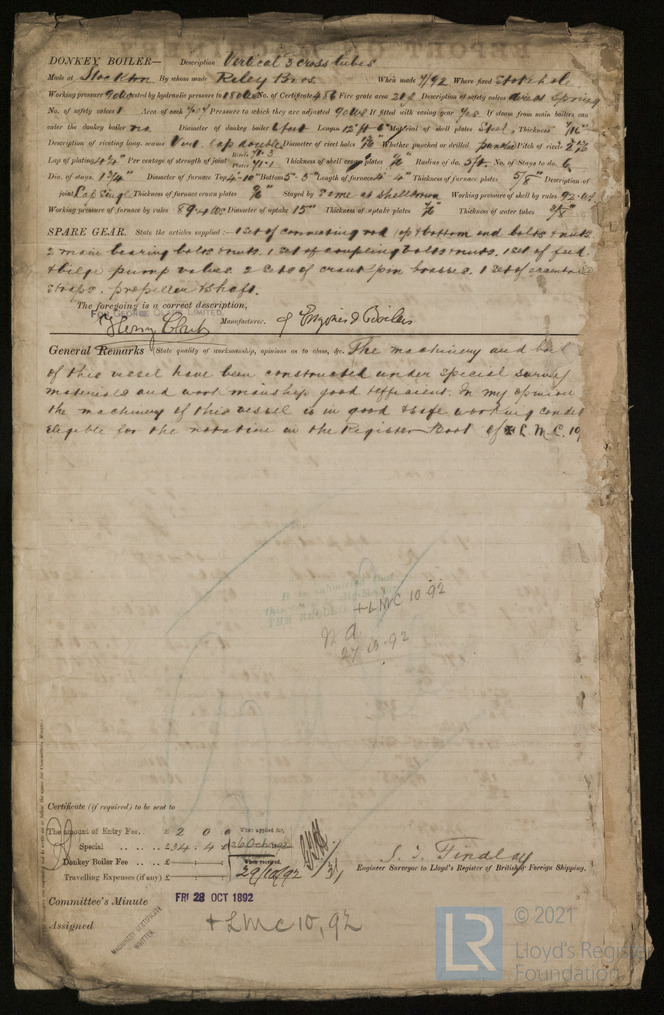 DONKEY BOILER— Description Vertical 3 cross tubes
Made at Stockton By whom made Riley Bros. When made 7/92 Where fixed Stokehold
Working pressure 90 lbs tested by hydraulic pressure to 180 lbs No. of Certificate 486 Fire grate area 21.2 Description of safety valves direct spring
No. of safety valves 1 Area of each Pressure to which they are adjusted 90 lbs If fitted with easing gear yes If steam from main boilers can
enter the donkey boiler no. Diameter of donkey boiler 6 feet Length 12 ft 6" Material of shell plates Steel, Thickness
Description of riveting long. seams Vert. Lap double Diameter of rivet holes Whether punched or drilled punched Pitch of rivets
Lap of plating Per centage of strength of joint Rivets Plates 71.1 Thickness of shell crown plates Radius of do. 5 ft No. of Stays to do. 6
Dia. of stays. 1 3/4" Diameter of furnace Top 4'-10" Bottom 5'-3" Length of furnace Thickness of furnace plates 5/8" Description of
joint Lap Single Thickness of furnace crown plates Stayed by Same as shell crown Working pressure of shell by rules 92
Working pressure of furnace by rules 89.4 lbs Diameter of uptake 15" Thickness of uptake plates Thickness of water tubes 3/8"
SPARE GEAR. State the articles supplied:— 1 set of connecting rod top & bottom end bolts & nuts
2 main bearing bolts & nuts. 1 set of coupling bolts & nuts. 1 set of feed
& bilge pump valves. 2 sets of crank pin brasses. 1 set of eccentric
straps. propeller shaft.
The foregoing is a correct description,
FOR GEORGE CLARK LIMITED.
Henry Clark Manufacturer. of Engines & Boilers
General Remarks (State quality of workmanship, opinions as to class, &c. The machinery and boil
of this vessel have been constructed under special survey
materials and workmanship good & efficient. In my opinion
the machinery of this vessel is in good & safe working condit
eligible for the notation in the Register Book of + L.M.C. 10
It is submitted that
THE RECORD
+LMC 10.92
27.10.92
Certificate (if required) to be sent to
The amount of Entry Fee. . £ 2 0 0 When applied for,
Special . . £ 34 . 4 26 Oct 1892
Donkey Boiler Fee . . £ When received,
Travelling Expenses (if any) £ 29/10/92 31/
S. J. Findlay
Engineer Surveyor to Lloyd's Register of British & Foreign Shipping.
Committee's Minute FRI 28 OCT 1892
Assigned + LMC 10,92
MACHINERY CERTIFICATE
WRITTEN
LR
© 2021
Lloyd's Register
Foundation